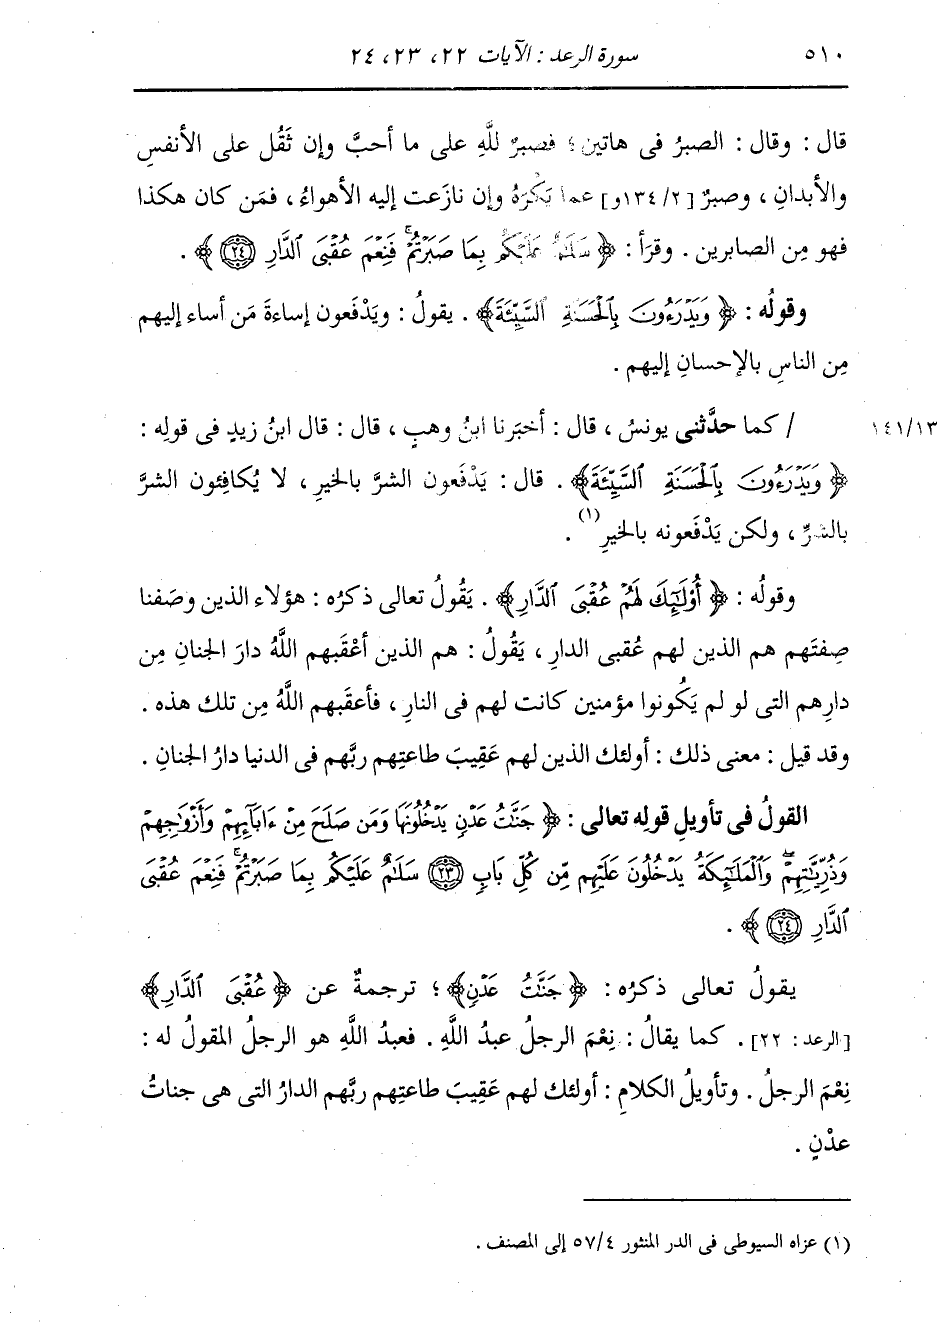 ٥١٠ سورة الرعد : الآيات ٢٢، ٢٣، ٢٤
قال : وقال : الصبرُ فى هاتين ؛ فصبرٌ للَّهِ على ما أحبَّ وإن ثَقُل على الأنفسِ
والأبدانِ ، وصبرٌ [٢/ ١٣٤و] عما يَكْرَهُ وإن نازَعت إليه الأهواءُ ، فمَن كان هكذا
فهو مِن الصابرين . وقرَأ : ﴿ سَلَـٰمٌ عَلَيْكُم بِمَا صَبَرْتُمْ ۚ فَنِعْمَ عُقْبَى ٱلدَّارِ (٢٤) ﴾ .
وقولُه : ﴿ وَيَدْرَءُونَ بِٱلْحَسَنَةِ ٱلسَّيِّئَةَ ﴾ . يقولُ : ويَدْفَعون إساءةَ مَن أساء إليهم
مِن الناسِ بالإحسانِ إليهم .
/ كما حدَّثنى يونسُ ، قال : أخبَرنا ابنُ وهبٍ ، قال : قال ابنُ زيدٍ فى قولِه : ١٤١/١٣
﴿ وَيَدْرَءُونَ بِٱلْحَسَنَةِ ٱلسَّيِّئَةَ ﴾ . قال : يَدْفَعون الشرَّ بالخيرِ ، لا يُكافِئون الشرَّ
بالشرِّ ، ولكن يَدْفَعونه بالخيرِ(١) .
وقولُه : ﴿ أُوْلَـٰٓئِكَ لَهُمْ عُقْبَى ٱلدَّارِ ﴾ . يَقُولُ تعالى ذكرُه : هؤلاء الذين وصَفنا
صِفتَهم هم الذين لهم عُقبى الدارِ ، يَقُولُ : هم الذين أعْقَبهم اللَّهُ دارَ الجنانِ مِن
دارِهم التى لو لم يَكُونوا مؤمنين كانت لهم فى النارِ ، فأعقَبهم اللَّهُ مِن تلك هذه .
وقد قيل : معنى ذلك : أولئك الذين لهم عَقِيبَ طاعتِهم ربَّهم فى الدنيا دارُ الجنانِ .
القولُ فى تأويلِ قولِه تعالى : ﴿ جَنَّـٰتُ عَدْنٍ يَدْخُلُونَهَا وَمَن صَلَحَ مِنْ ءَابَآئِهِمْ وَأَزْوَٰجِهِمْ
وَذُرِّيَّـٰتِهِمْ ۖ وَٱلْمَلَـٰٓئِكَةُ يَدْخُلُونَ عَلَيْهِم مِّن كُلِّ بَابٍ (٢٣) سَلَـٰمٌ عَلَيْكُم بِمَا صَبَرْتُمْ ۚ فَنِعْمَ عُقْبَى
ٱلدَّارِ (٢٤) ﴾ .
يقولُ تعالى ذكرُه : ﴿ جَنَّـٰتُ عَدْنٍ ﴾ ؛ ترجمةٌ عن ﴿ عُقْبَى ٱلدَّارِ ﴾
[الرعد : ٢٢] . كما يقالُ : نِعْمَ الرجلُ عبدُ اللَّهِ . فعبدُ اللَّهِ هو الرجلُ المقولُ له :
نِعْمَ الرجلُ . وتأويلُ الكلامِ : أولئك لهم عَقِيبَ طاعتِهم ربَّهم الدارُ التى هى جناتُ
عدْنٍ .
(١) عزاه السيوطى فى الدر المنثور ٥٧/٤ إلى المصنف .